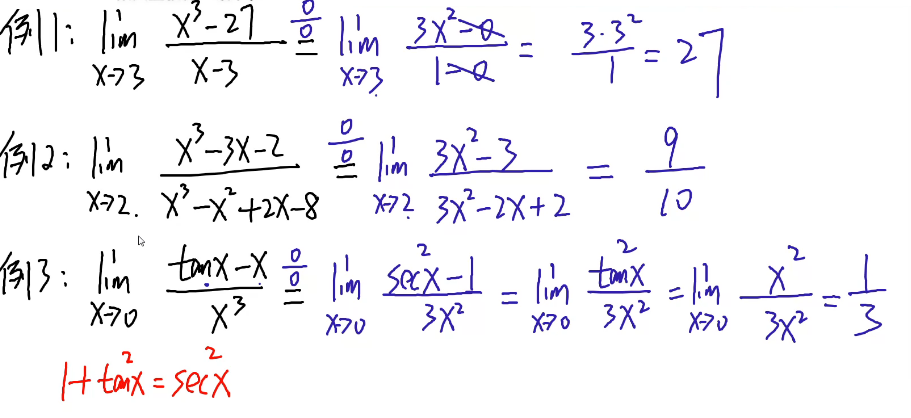 例1: lim x→3 (x³-27)/(x-3) =(0/0) lim x→3 (3x²-0)/(1-0) = (3·3²)/1 = 27
例2: lim x→2. (x³-3x-2)/(x³-x²+2x-8) =(0/0) lim x→2 (3x²-3)/(3x²-2x+2) = 9/10
例3: lim x→0 (tanx-x)/x³ =(0/0) lim x→0 (sec²x-1)/3x² = lim x→0 tan²x/3x² = lim x→0 x²/3x² = 1/3
1+tan²x=sec²x